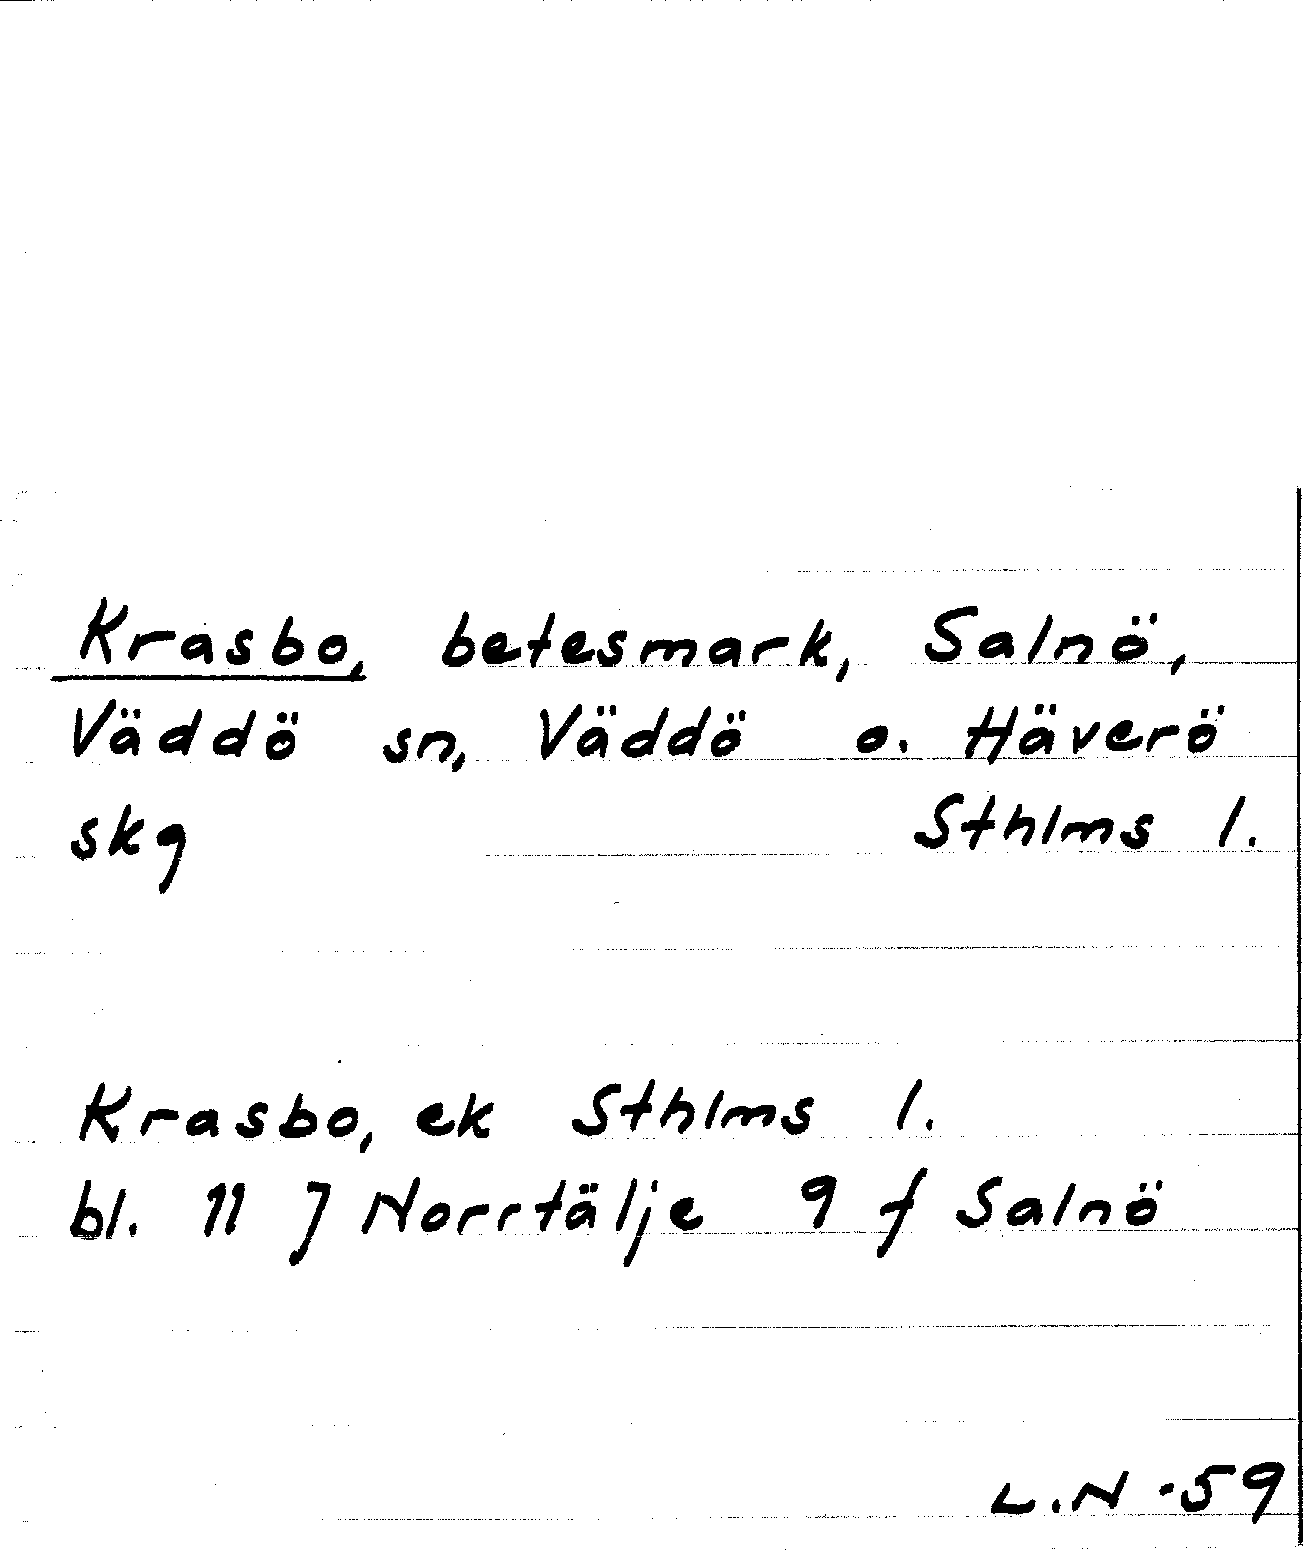 Krasbo, betesmark, Salnö,
Väddö sn, Väddö o. Häverö
skg Sthlms l.
Krasbo, ek Sthlms l.
bl. 11 J Norrtälje 9 f Salnö
L.N -59